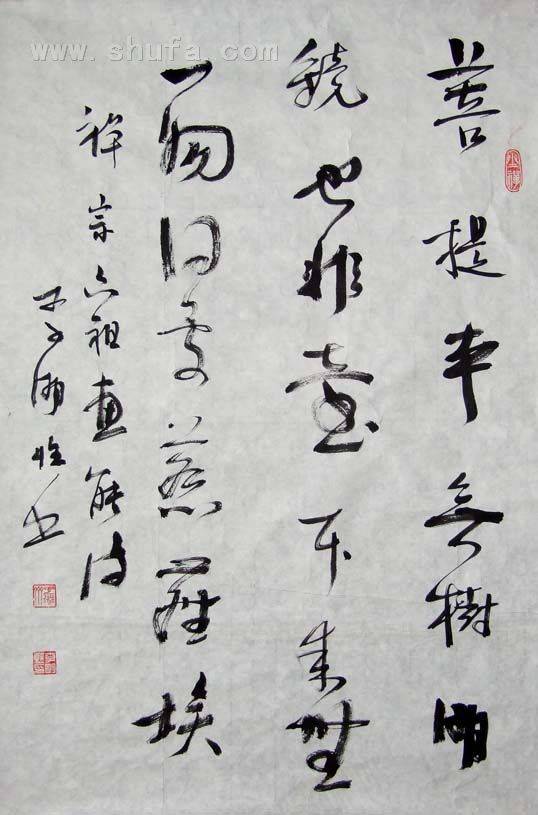 www.shufa.com
菩提本無樹明
鏡也非臺本來無
一物何處惹塵埃
禪宗六祖惠能詩